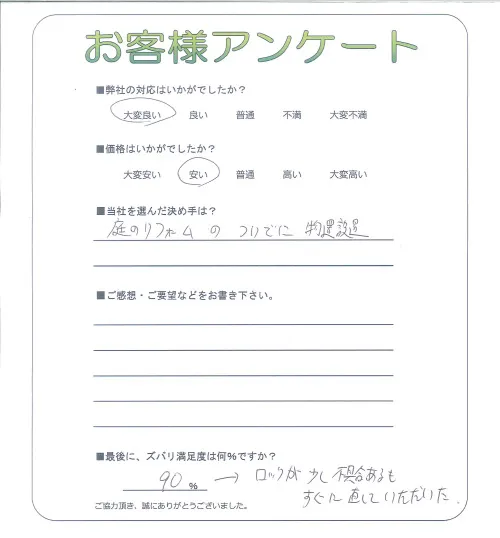 お客様アンケート
■弊社の対応はいかがでしたか？
大変良い 良い 普通 不満 大変不満
■価格はいかがでしたか？
大変安い 安い 普通 高い 大変高い
■当社を選んだ決め手は？
庭のリフォームの ついでに 物置設置
■ご感想・ご要望などをお書き下さい。
■最後に、ズバリ満足度は何%ですか？
90 % → ロックが 少し 不具合あるも
すぐに 直していただいた.
ご協力頂き、誠にありがとうございました。